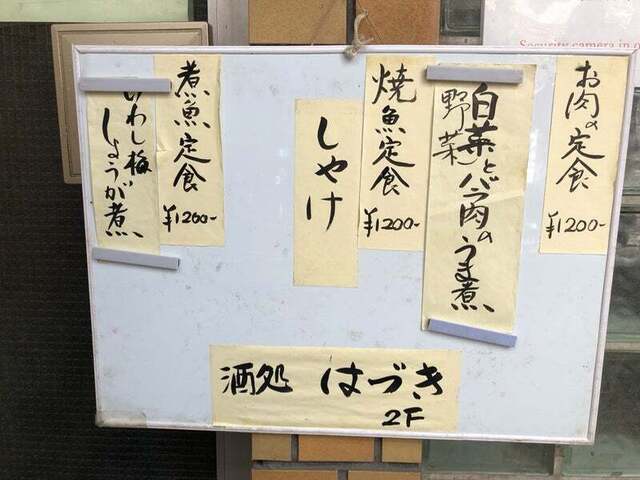 お肉の定食
¥1200-
白菜とバラ肉のうま煮
野菜
焼魚定食
¥1200-
しゃけ
煮魚定食
¥1200-
いわし梅
しょうが煮
酒処 はづき
2F
Security camera in o